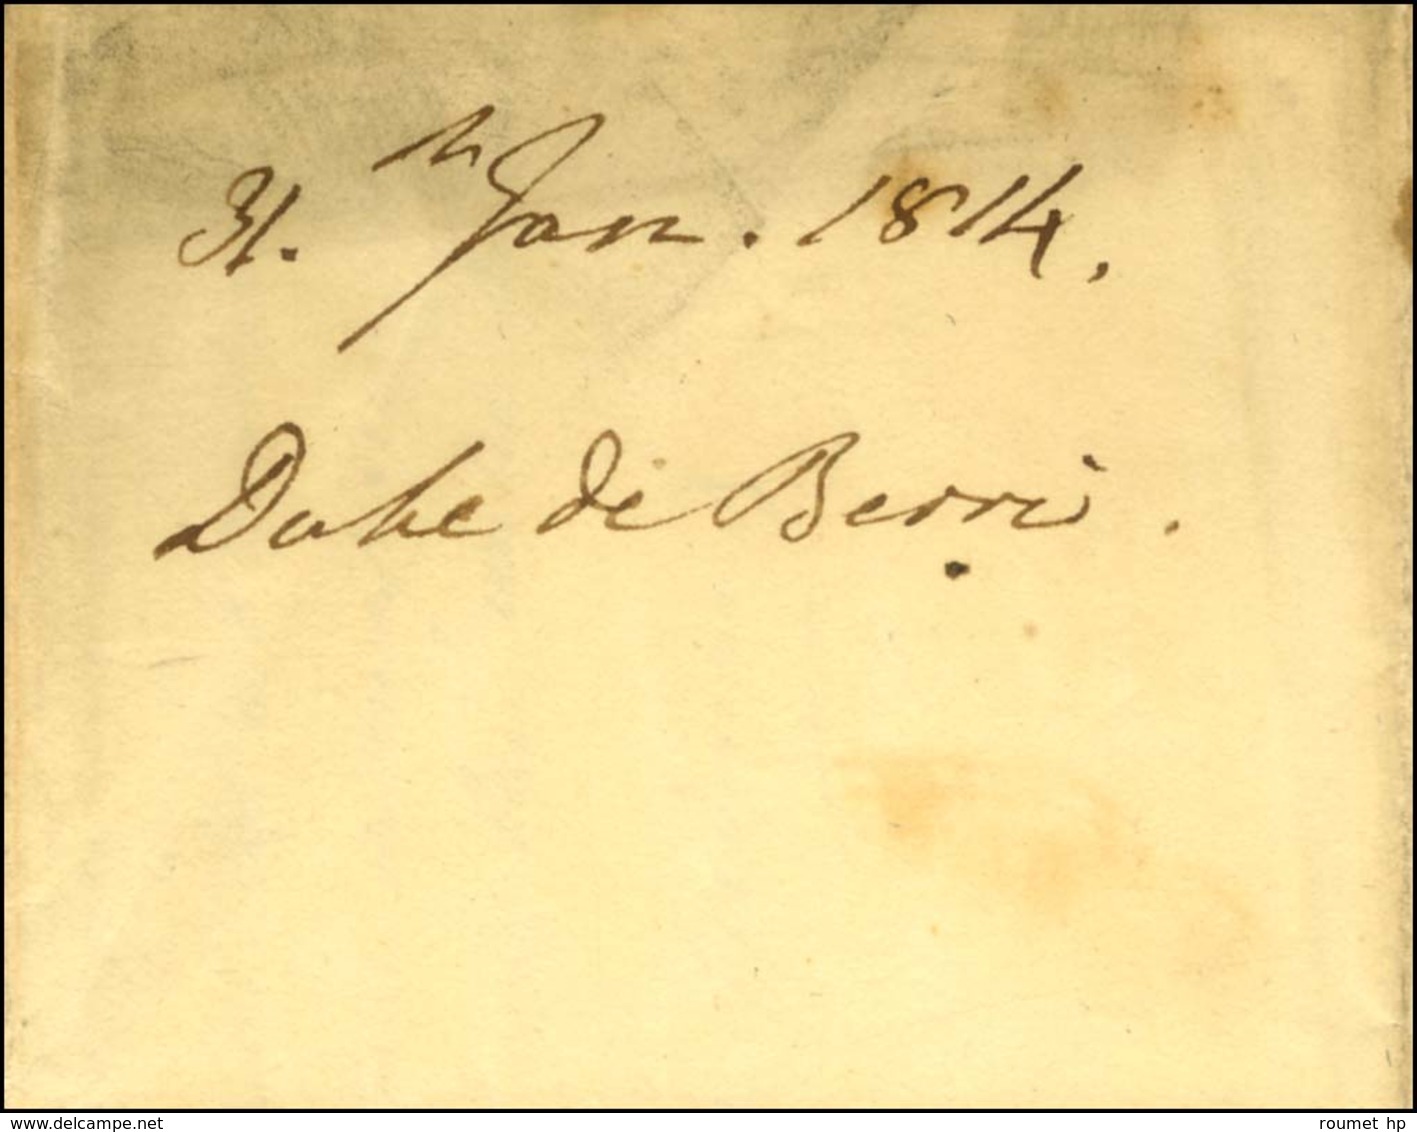 31. Jan. 1814.
Duke de Berri.
www.delcampe.net
roumet hp